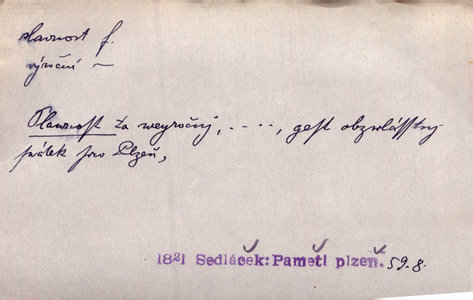 slavnost f.
výroční ~
Slawnost ta weyročnj, . - . . , gest obzwlásstnj
swátek pro Plzeň,
1821 Sedláček: Paměti plzeň. 59.8.